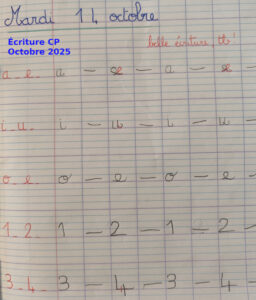 Mardi 14 octobre
Écriture CP
Octobre 2025
belle écriture tb!
a_e_ a — e — a — e —
i_u_ i — u — i — u —
o_e_ o — e — o — e —
1_2_ 1 — 2 — 1 — 2 —
3_4_ 3 — 4 — 3 — 4 —